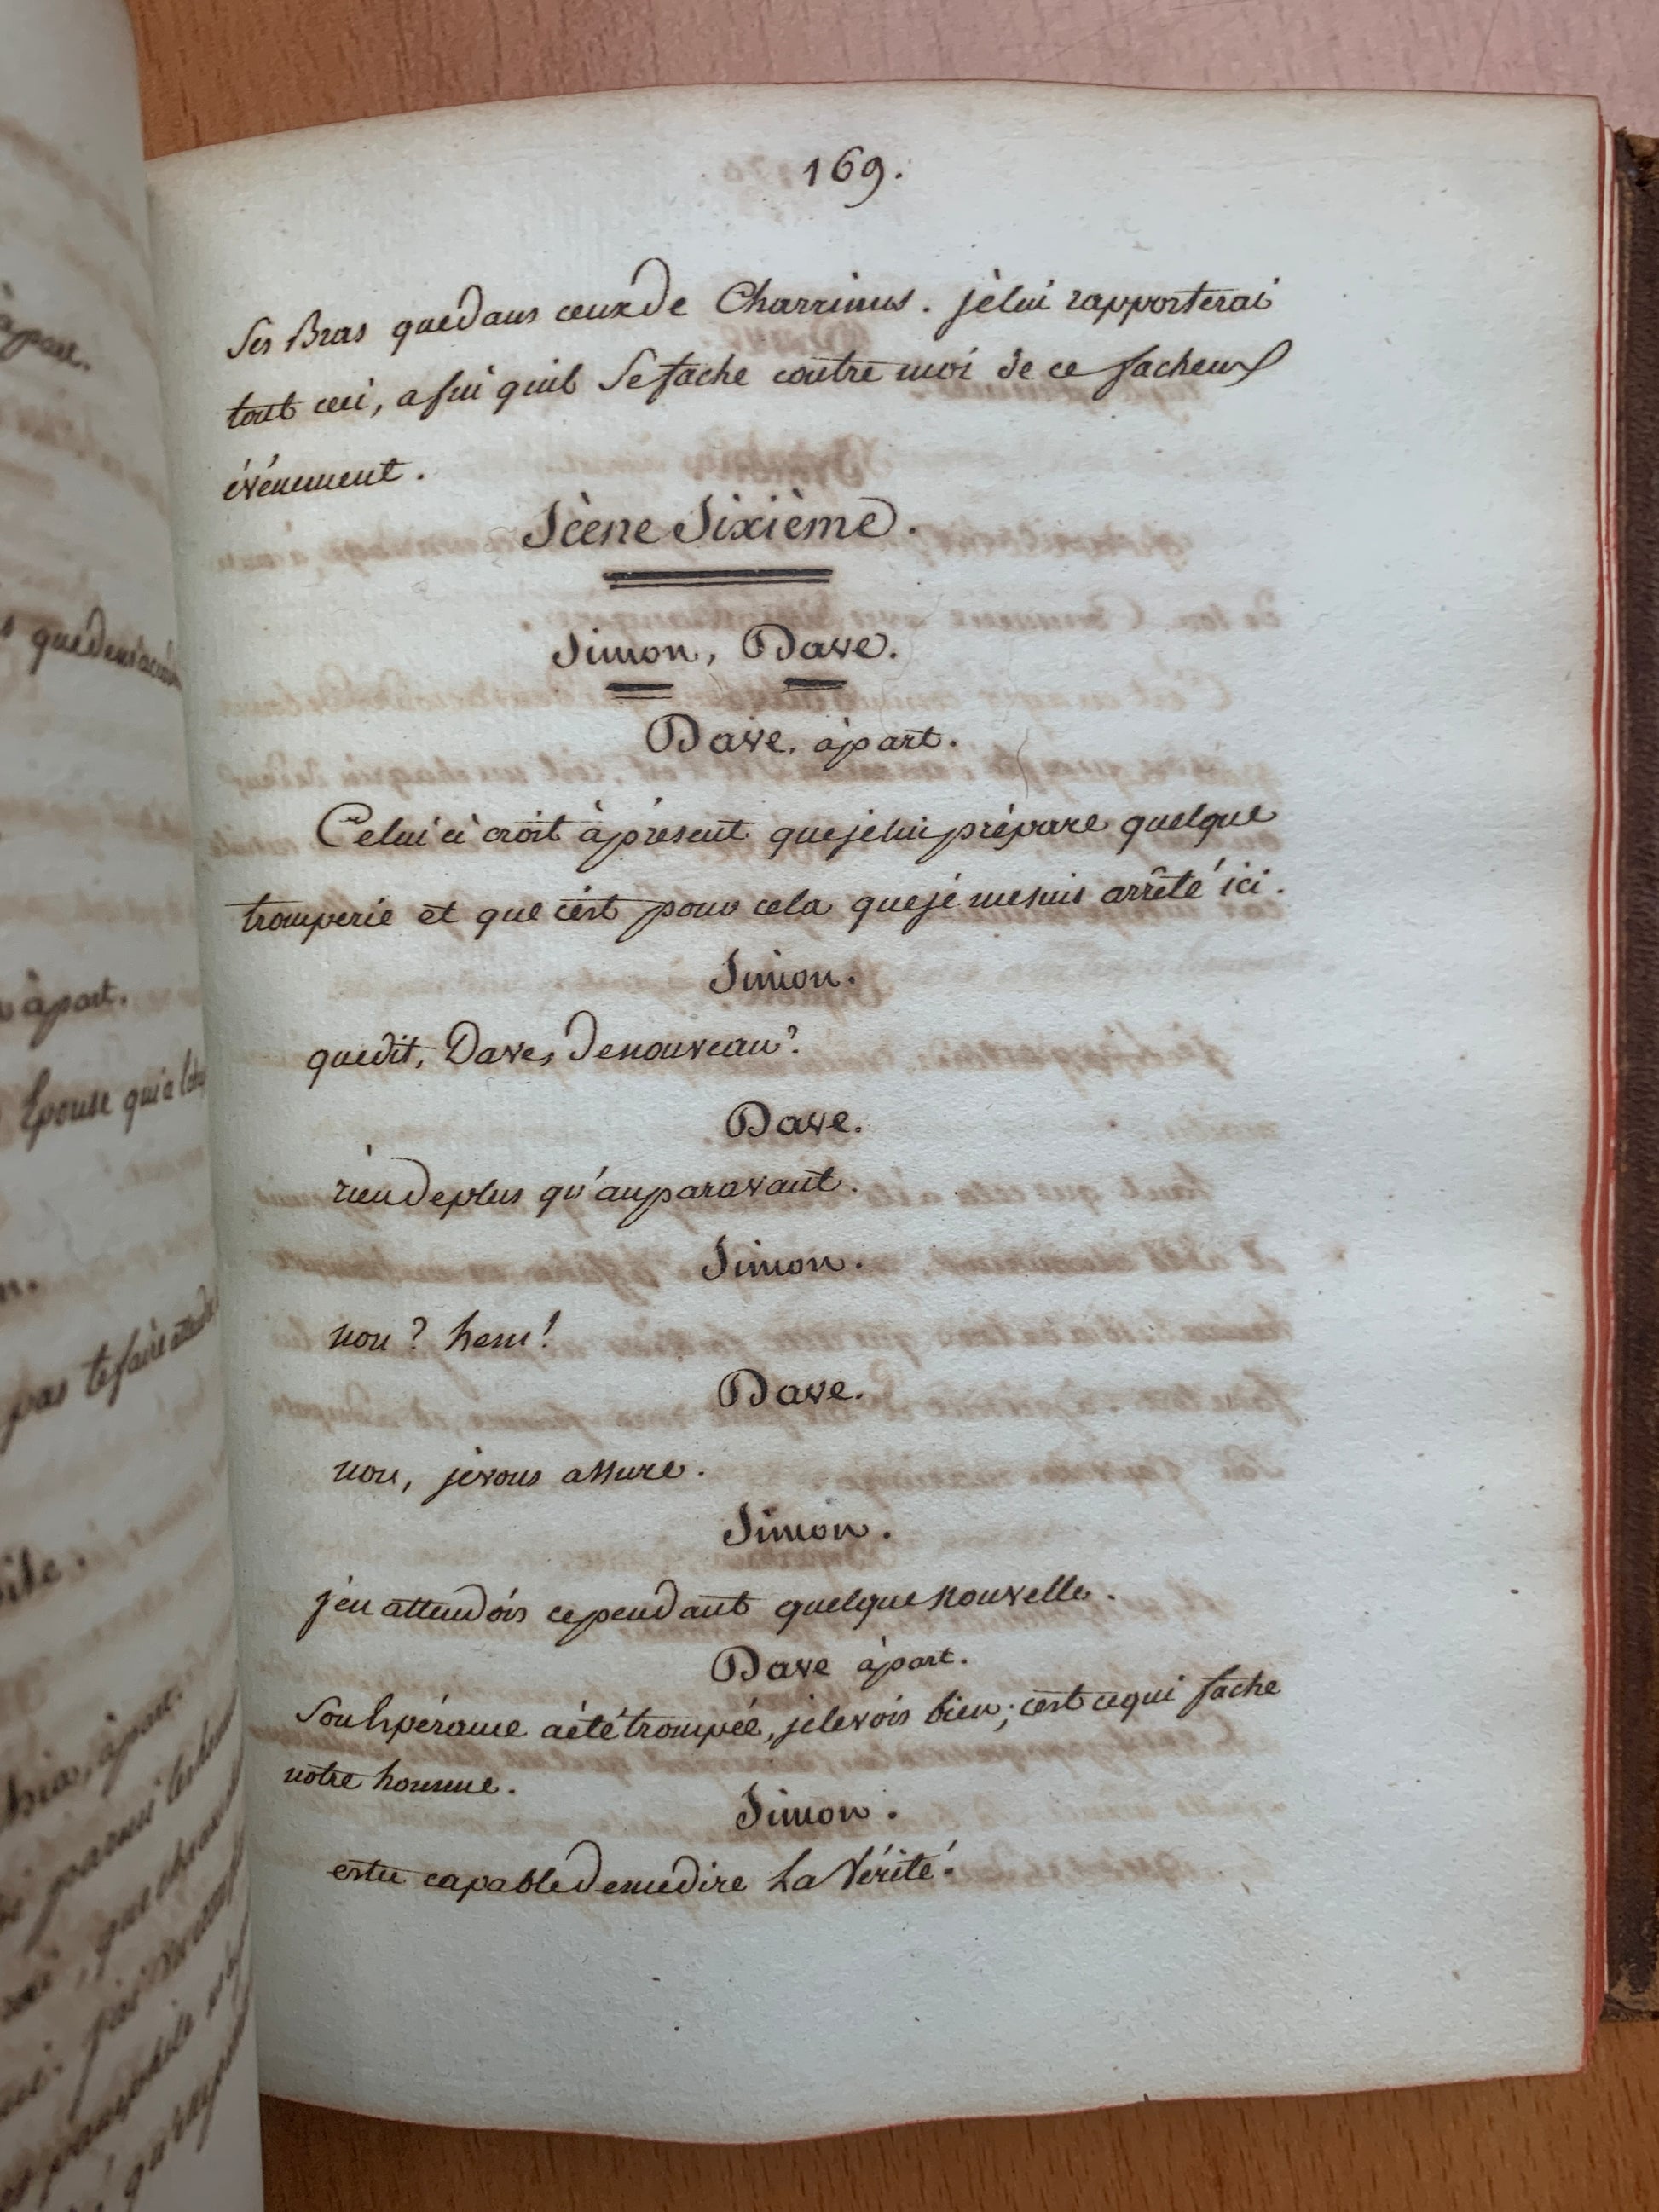 169.
Ses Bras que dans ceux de Charrinus. je lui rapporterai
tout ceci, afin qu'il se fache contre moi de ce facheux
événement.
Scène Sixième.
Simon, Dave.
Dave, àpart.
Celui ci croit à présent que je lui prépare quelque
tromperie et que c'est pour cela que je me suis arrêté ici.
Simon.
que dit, Dave, de nouveau?
Dave.
rien de plus qu'auparavant.
Simon.
non? hem!
Dave.
non, je vous assure.
Simon.
j'en attendois cependant quelque nouvelle.
Dave àpart.
Son Espérance a été trompée, je le vois bien; c'est ce qui fache
notre homme.
Simon.
es tu capable de me dire La Vérité.
àpart.
que dens
àpart.
Epouse qui a
pas te faire attendre
àpart.
parmi les
que